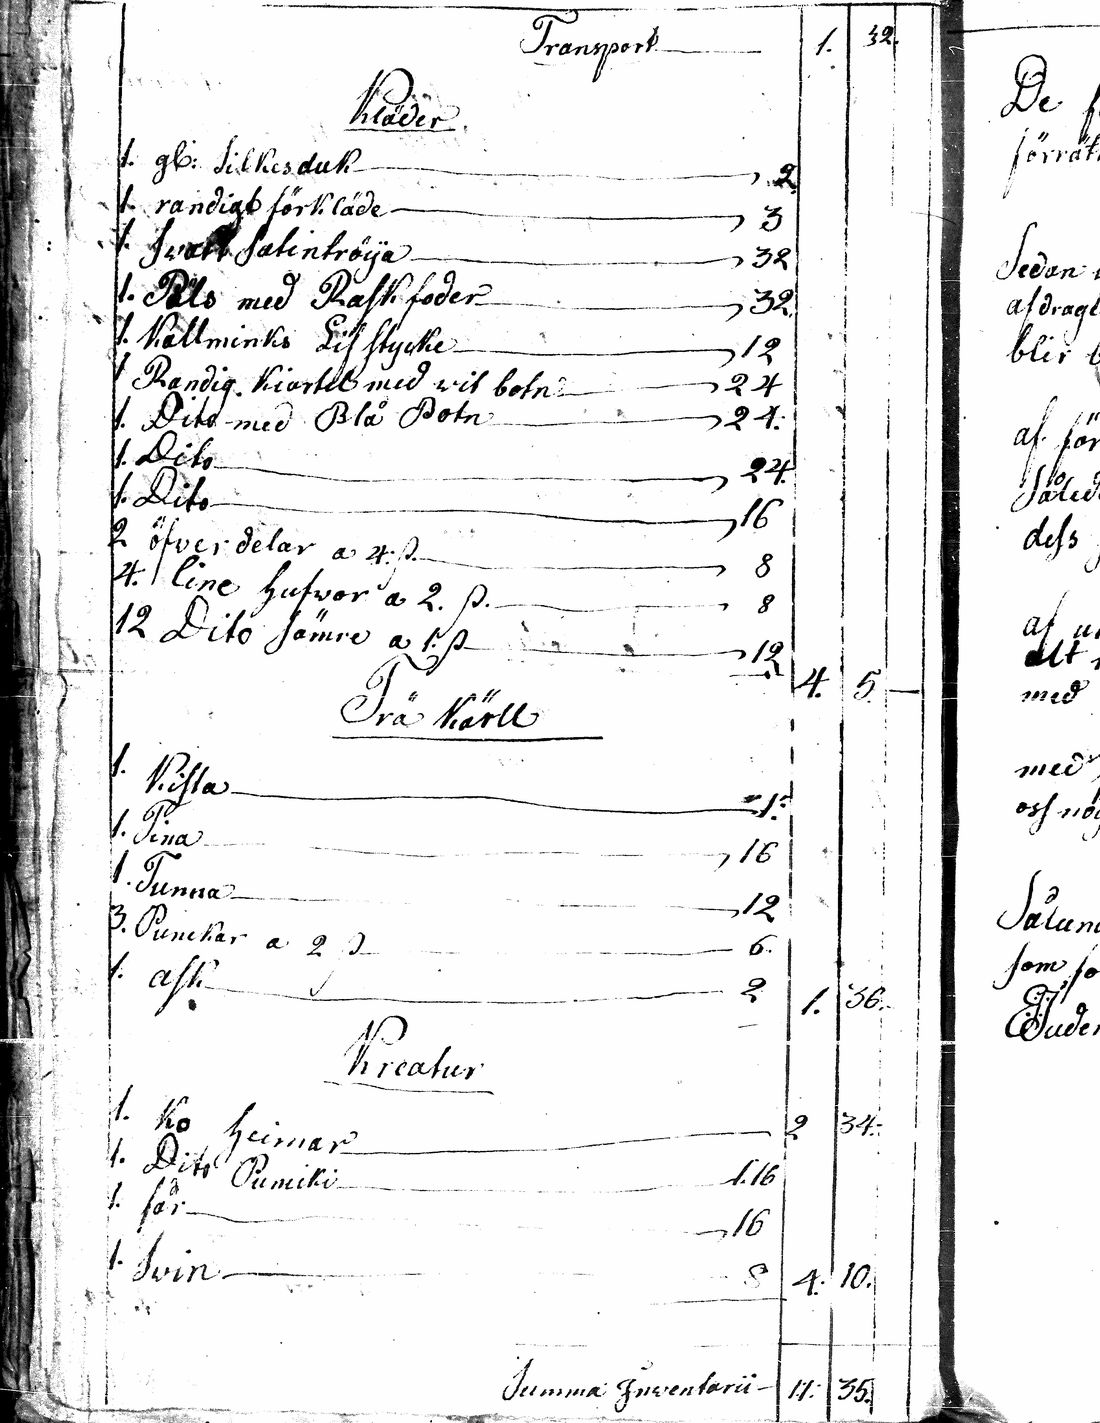 Transport 1. 32.
Kläder
1. gl: Silkesduk , 2
1. randigt förkläde , 3
1. Svart Satintröija , 32
1. Päls med Rask foder , 32
1. Kallminks Lifstycke , 12
1 Randig. Kiortel med vit botn , 24
1. Dito med Blå Botn , 24.
1. Dito , 24.
1. Dito , 16
2 öfverdelar a 4. ß. , 8
4. line hufvor a 2. ß. , 8
12 Dito sämre a 1. ß , 12
4. 5.
Trä Käril
1. Kista 1.
1. Tina , 16
1. Tunna , 12
3. Punckar a 2 ß 6.
1. ask 2 1. 36.
Kreatur
1. Ko Heimar 2 34.
1. Dito Pumiki 1.16
1. får , 16
1. Svin 8 4. 10.
Summa Inventarii 11. 35.
De
förråt
Sedan
afdragt
blir
af. för
Således
dess
af
alt
med
med
oss nög
Sålund
som